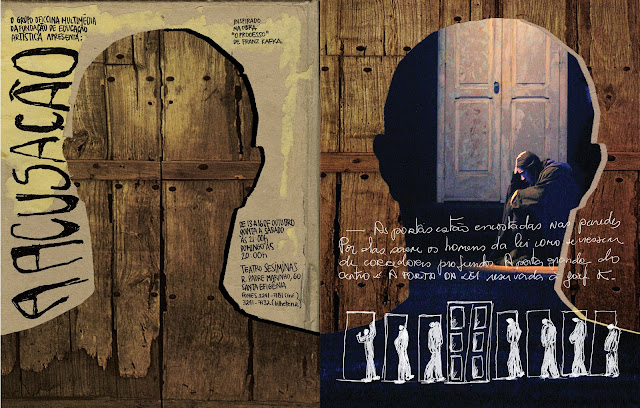 O GRUPO OFICCINA MULTIMÉDIA
DA FUNDAÇÃO DE EDUCAÇÃO
ARTÍSTICA APRESENTA:
A ACUSAÇÃO
INSPIRADO
NA OBRA
"O PROCESSO"
DE FRANZ KAFKA.
DE 13 A 16 DE OUTUBRO
QUINTA A SÁBADO
ÀS 21:00H
DOMINGO ÀS
20:00H
TEATRO SESIMINAS
R. PADRE MARINHO, 60
SANTA EFIGÊNIA
FONES: 3241-7181
3241-7132 (bilheteria)
— As portas estão encostadas nas paredes
Por elas saem os homens da lei como se viessem
de corredores profundos. A porta grande do
centro é A PORTA DA LEI reservada a Josef K.